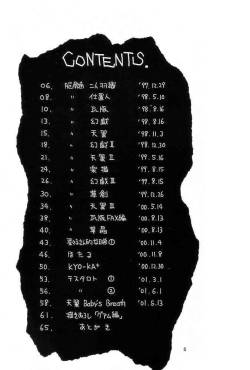 CONTENTS.
06. 二人羽織 '97.12.29
08. 〃 仕置人 '98.5.10
10. 〃 瓦版 '98.8.16
13. 〃 幻戯 '98.8.16
15. 〃 天翼 '98.11.3
18. 〃 幻戯Ⅱ '98.12.30
21. 〃 天翼Ⅱ '99.5.16
24. 〃 '99.8.15
26. 〃 幻戯Ⅲ '99.8.15
30. 〃 '99.12.26
34. 〃 天翼Ⅲ '00.5.14
38. 〃 瓦版FAX編 '00.8.13
40. 〃 '00.8.13
43. ① '00.11.4
46. ほたる '00.11.8
50. KYO-KA* '00.12.30
53. テスタロト ① '01.3.1
56. 〃 ② '01.6.1
58. 天翼 Baby's Breath '01.6.13
61. 描きおろし
65. あとがき
5